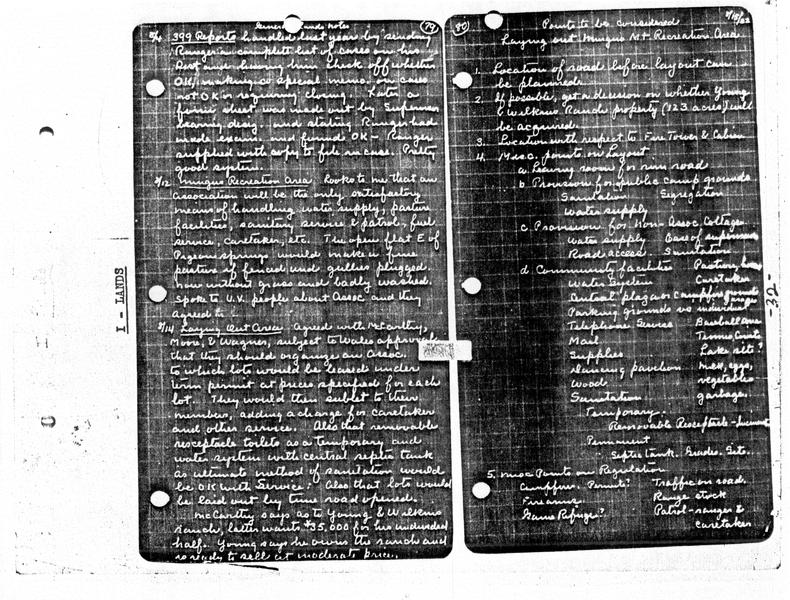 General Lands notes
(79)
5/4 399 Reports handled last year by sending
Ranger a complete list of cases on his
Dist and having him check off whether
OK, making a special memo on cases
not OK or requiring closing. Later a
form sheet was made out by Supervisor
bearing desig and stating Ranger had
made exam and found OK - Ranger
supplied with copy to file in case. Pretty
good system.
5/12 Mingus Recreation Area Looks to me that an
association will be the only satisfactory
means of handling water supply, pasture
facilities, sanitary service & patrol, fuel
service, caretaker, etc. The open flat E of
Pigeon spring would make a fine
pasture if fenced and gullies plugged
now without grass and badly washed.
Spoke to U.V. people about Assoc and they
agreed to
5/14 Laying Out Area Agreed with McCarthy,
Moore, & Wagner, subject to Wales approval,
that they should organize an Assoc.
to which lots would be leased under
term permit at prices specified for each
lot. They would then sublet to their
members, adding a charge for caretaker
and other service. Also that removable
receptacle toilets as a temporary and
water system with central septic tank
as ultimate method of sanitation would
be OK with Service. Also that lots would
be laid out by time road opened.
McCarthy says as to Young & Wilkins
ranch, latter wants $35,000 for his undivided
half. Young says he owns the ranch and
is ready to sell at moderate price.
I - LANDS
(80)
Points to be considered
Laying out Mingus Mt Recreation Area
1. Location of road before layout can
be planned.
2. If possible, get a decision on whether Young
& Wilkins Ranch property (323 acres) will
be acquired.
3. Location with respect to Fire Tower & Cabin
4. Misc. points on Layout
a. Leaving room for rim road
b. Provision for public camp grounds
Sanitation Segregation
Water supply
c. Provision for Non-Assoc. Cottages
Water supply Ease of supervision
Road access. Sanitation
d. Community facilities Pasture,
Water System Caretaker
Central plaza or campfire grounds
Parking grounds vs individual garages
Telephone Service Baseball Area
Mail Tennis Courts
Supplies Lake site?
Dancing pavilion Milk, eggs,
Wood vegetables
Sanitation garbage.
Temporary.
Removable Receptacle -
Permanent
Septic tank. Grades. Etc.
5. Misc Points on Regulation
Campfires. Permits? Traffic on road.
Firearms Range stock
Game Refuge? Patrol - ranger &
caretaker
-32-